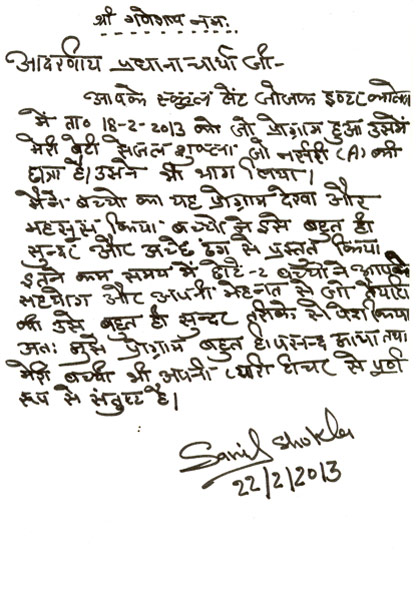 श्री गणेशाय नमः
आदरणीय प्रधानाचार्या जी-
आपके स्कूल सेंट जोजफ इण्टर कालेज
में ता० 18-2-2013 को जो प्रोग्राम हुआ उसमें
मेरी बेटी सेजल शुक्ला जो नर्सरी (A) की
छात्रा है। उसने भी भाग लिया।
मैंने बच्चो का यह प्रोग्राम देखा और
महसूस किया बच्चो ने इसे बहुत ही
सुन्दर और अच्छे ढंग से प्रस्तुत किया
इतने कम समय में छोटे-2 बच्चो ने आपके
सहयोग और अपनी मेहनत से जो तैयारी
की उसे बहुत ही सुन्दर तरीके से पेश किया
अतः मुझे प्रोग्राम बहुत ही पसन्द आया तथा
मेरी बच्ची भी अपनी प्यारी टीचर से पूर्ण
रूप से संतुष्ट है।
Sanil Shukla
22/2/2013